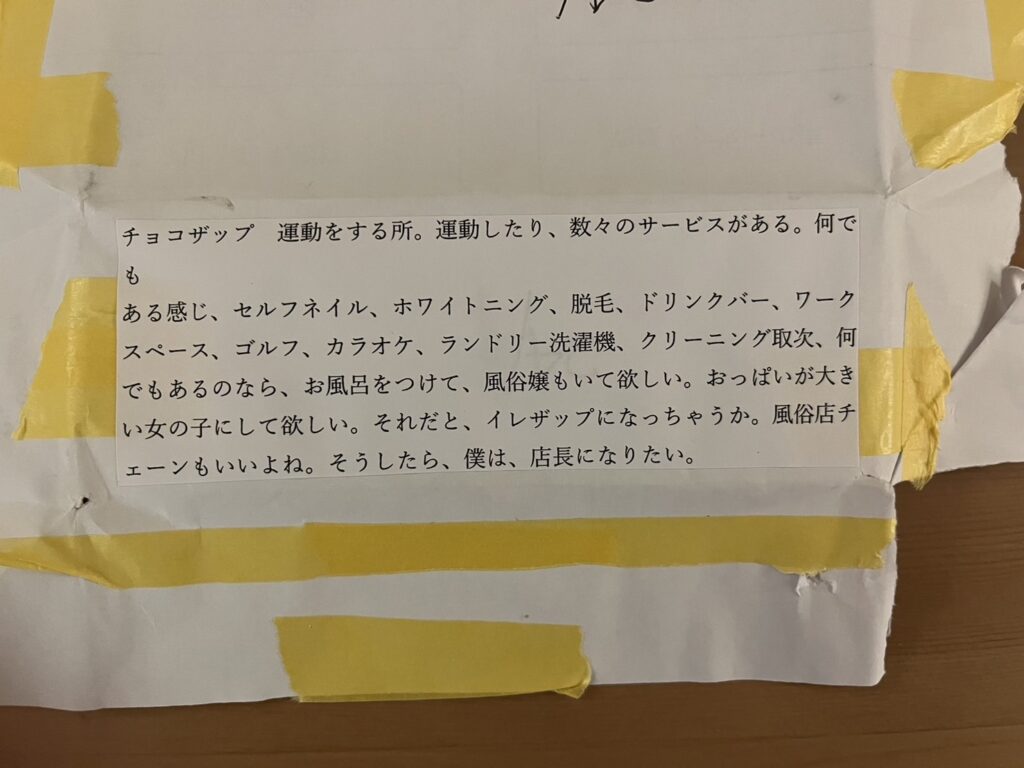 チョコザップ　運動をする所。運動したり、数々のサービスがある。何で
も
ある感じ、セルフネイル、ホワイトニング、脱毛、ドリンクバー、ワーク
スペース、ゴルフ、カラオケ、ランドリー洗濯機、クリーニング取次、何
でもあるのなら、お風呂をつけて、風俗嬢もいて欲しい。おっぱいが大き
い女の子にして欲しい。それだと、イレザップになっちゃうか。風俗店チ
ェーンもいいよね。そうしたら、僕は、店長になりたい。